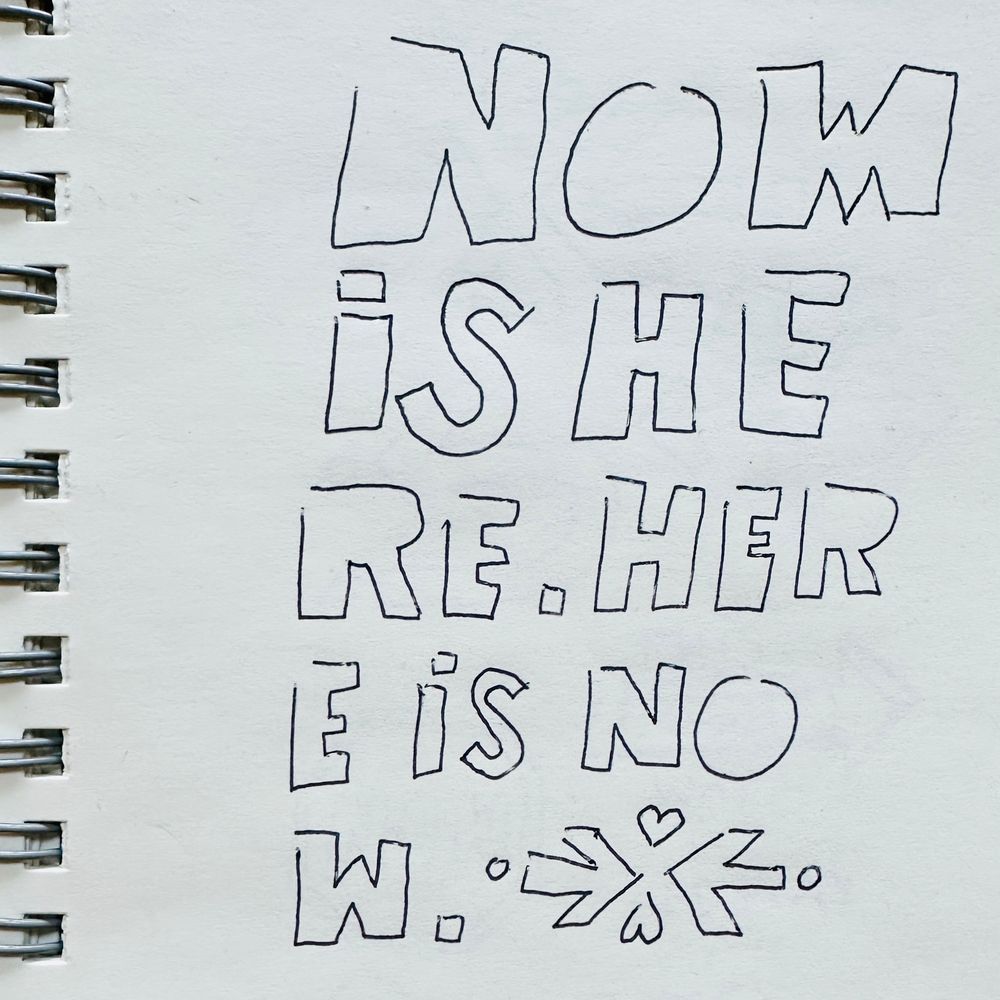 NOW
iS HE
RE. HER
E iS NO
W.